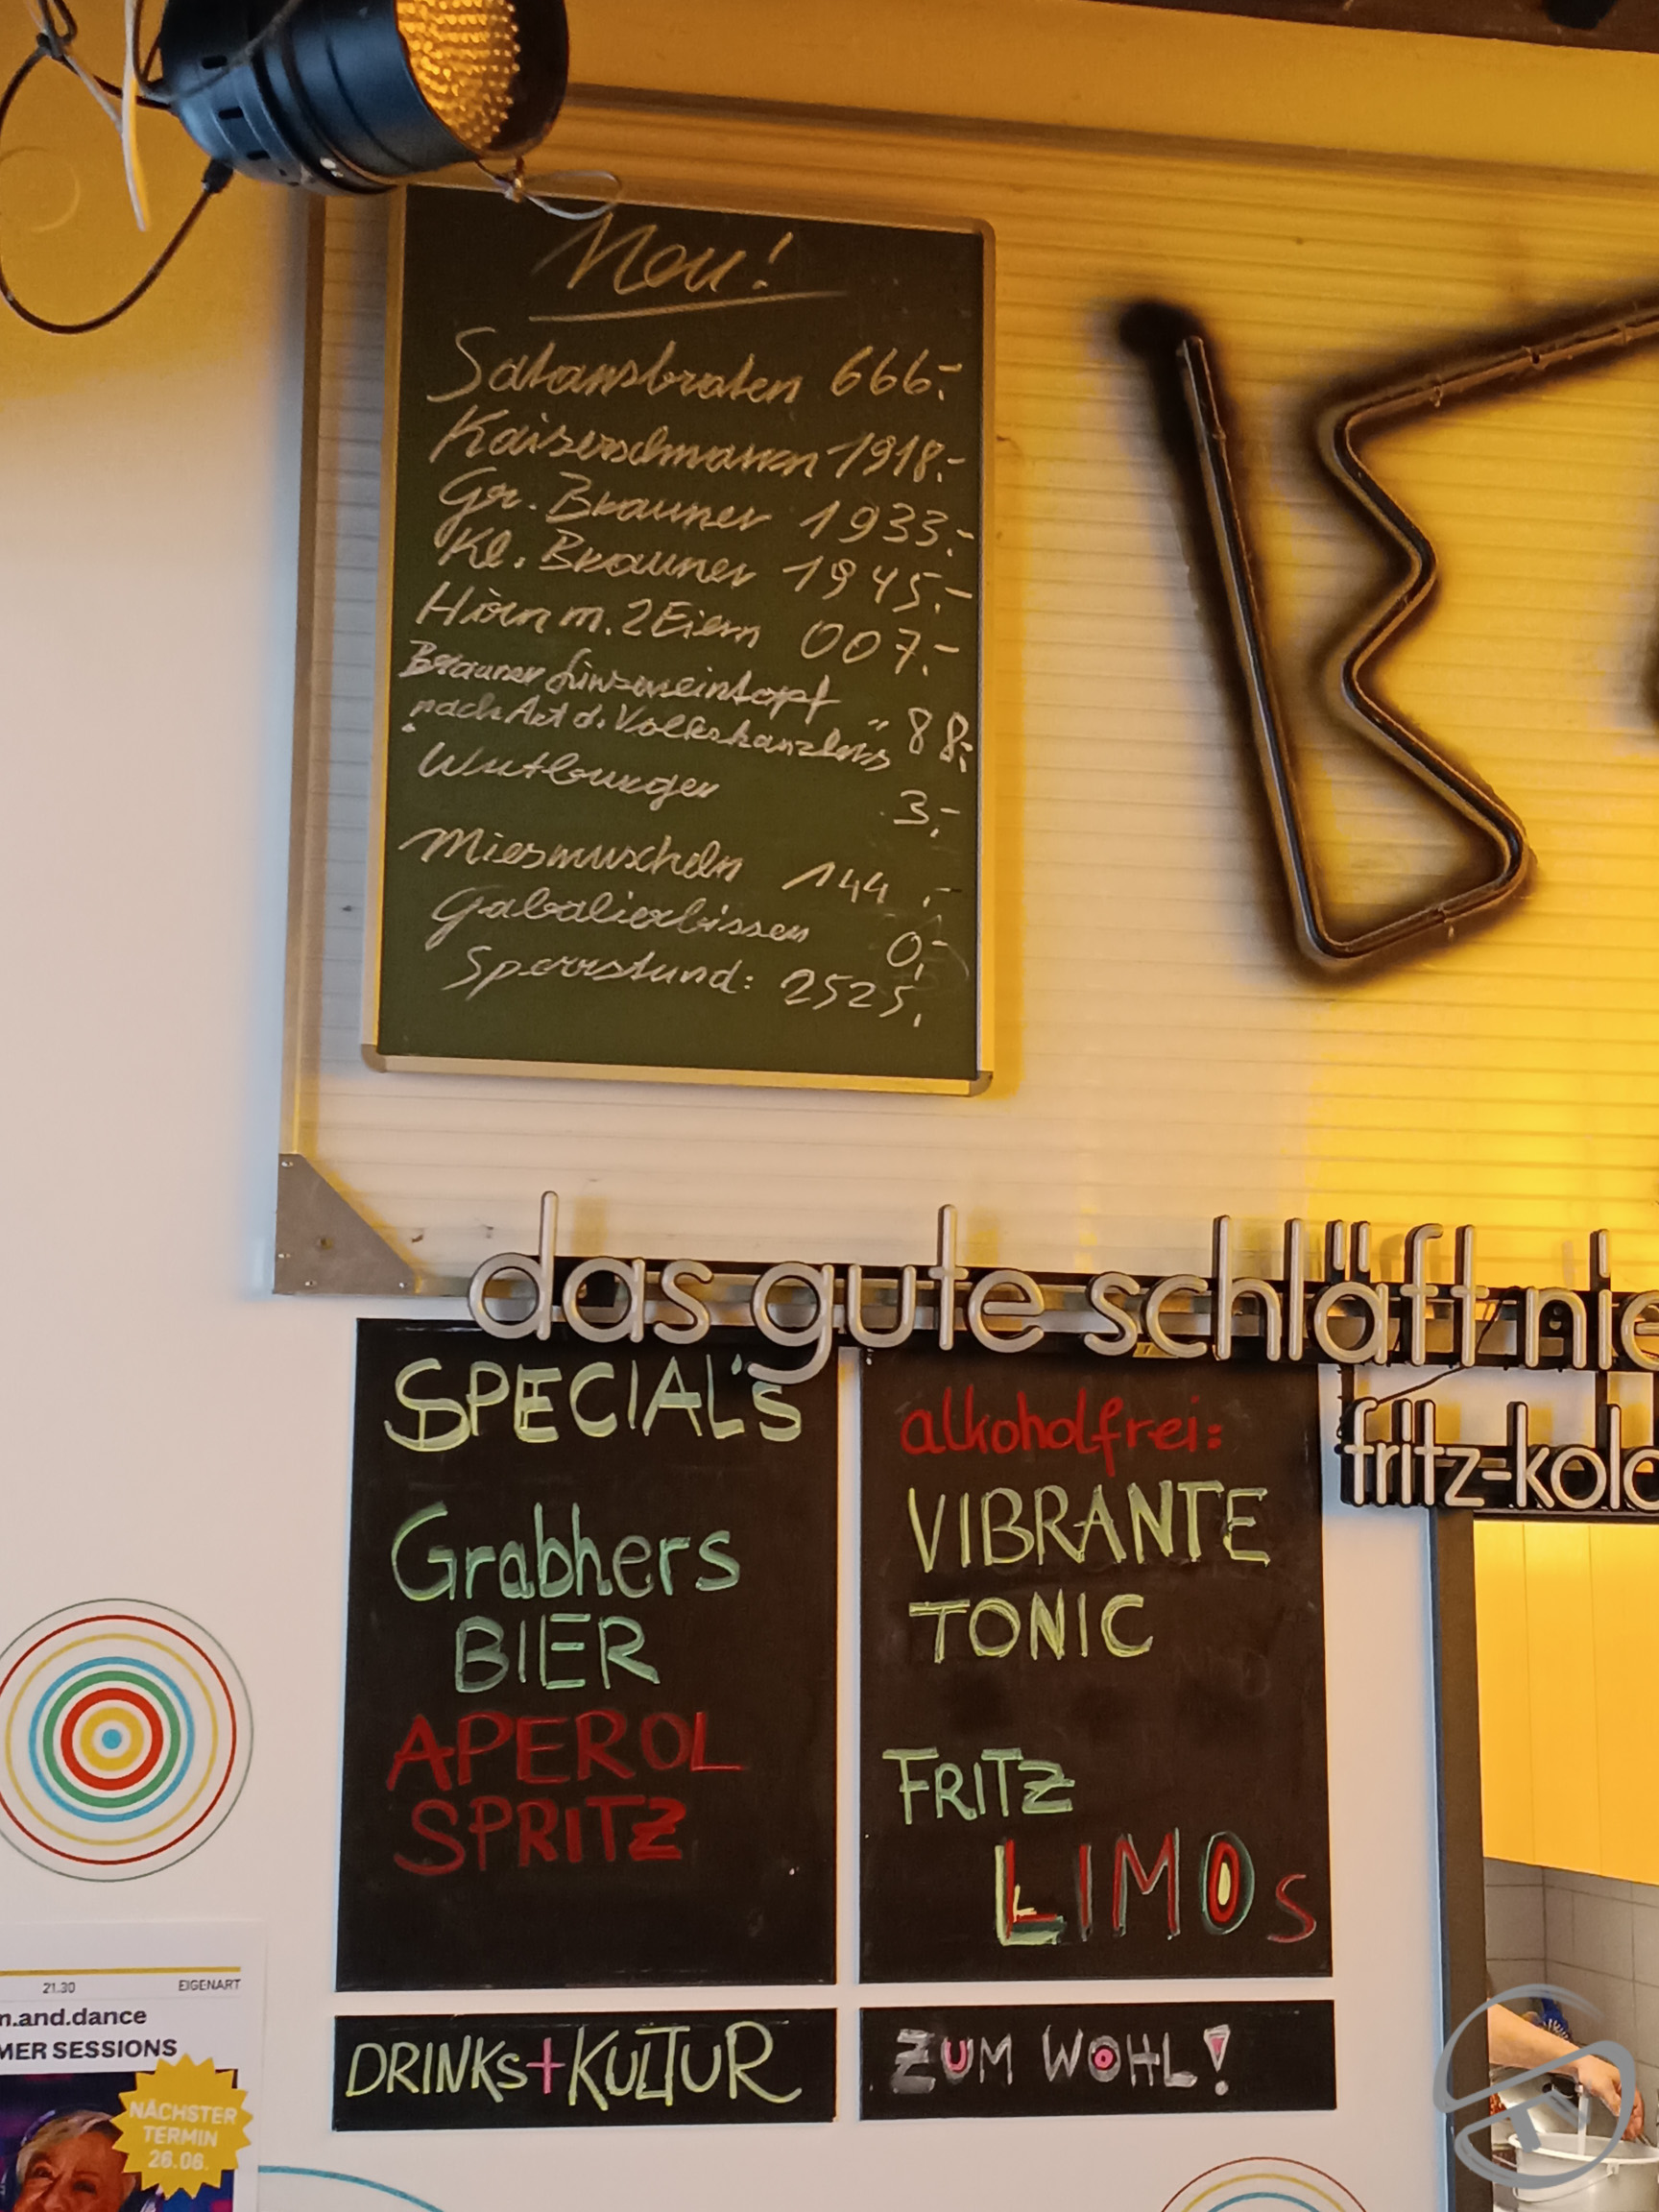 Neu!
Satansbraten 666.-
Kaiserschmarrn 1918.-
Gr. Brauner 1933.-
Kl. Brauner 1945.-
Hirn m. 2 Eiern 007.-
Brauner Linseneintopf
nach Art d. Volkskanzlers" 88.-
Wutburger 3,-
Miesmuscheln 144,-
Gabalierbissen 0,-
Sperrstund: 2525,
das gute schläft nie
fritz-kola
SPECIAL'S
Grabhers
BIER
APEROL
SPRITZ
alkoholfrei:
VIBRANTE
TONIC
FRITZ
LIMOs
DRINKs+KULTUR
ZUM WOHL!
21.30 EIGENART
m.and.dance
MER SESSIONS
NÄCHSTER
TERMIN
26.06.